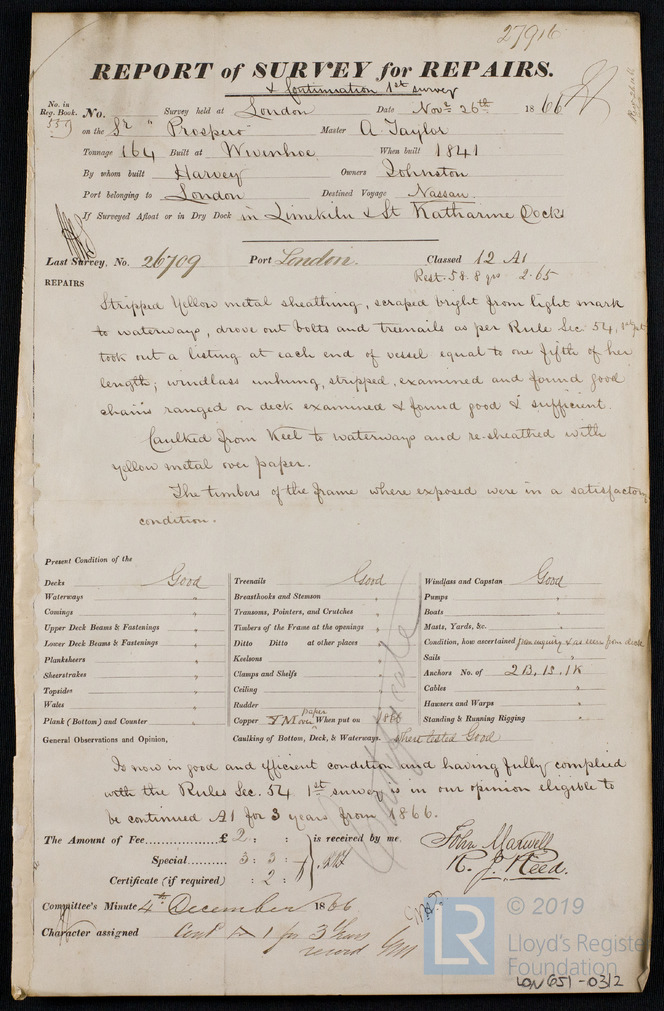 27916
REPORT of SURVEY for REPAIRS.
& Continuation 1st survey
No. in Reg. Book. 559 No. Survey held at London Date Novr 26th 1866
on the Sr "Prospero Master A Taylor
Tonnage 164 Built at Wivenhoe When built 1841
By whom built Harvey Owners Johnston
Port belonging to London Destined Voyage Nassau
If Surveyed Afloat or in Dry Dock in Limekiln & St Katharine Docks
Last Survey, No. 26709 Port London. Classed 12 A1
Rest. 58. 8 yrs 2.65
REPAIRS
Stripped Yellow metal sheathing, scraped bright from light mark
to waterways, drove out bolts and treenails as per Rule Sec. 54, 1st pt
took out a listing at each end of vessel equal to one fifth of her
length; windlass unhung, stripped, examined and found good
chains ranged on deck examined & found good & sufficient.
Caulked from Keel to waterways and re-sheathed with
yellow metal over paper.
The timbers of the frame where exposed were in a satisfactory
condition.
Present Condition of the
Decks Good Treenails Good Windlass and Capstan Good
Waterways " Breasthooks and Stemson " Pumps "
Comings " Transoms, Pointers, and Crutches " Boats "
Upper Deck Beams & Fastenings " Timbers of the Frame at the openings " Masts, Yards, &c. "
Lower Deck Beams & Fastenings " Ditto Ditto at other places " Condition, how ascertained from inquiry & as seen from deck
Planksheers " Keelsons " Sails "
Sheerstrakes " Clamps and Shelfs " Anchors No. of 2B, 1S, 1K
Topsides " Ceiling " Cables "
Wales " Rudder " Hawsers and Warps "
Plank (Bottom) and Counter " Copper YM over paper When put on 1866 Standing & Running Rigging "
General Observations and Opinion, Caulking of Bottom, Deck, & Waterways. where tested Good
Is now in good and efficient condition and having fully complied
with the Rules Sec. 54 1st survey is in our opinion eligible to
be continued A1 for 3 years from 1866.
Certificate
The Amount of Fee............ £ 2 : : is received by me,
Special......... 3 : 3 :
Certificate (if required) : 2 :
John Maxwell
R. J. Reed.
Committee's Minute 4th December 1866
Character assigned Contd A 1 for 3 Years
record
LR
© 2019
Lloyd's Registe
Foundation
LON 651-0312